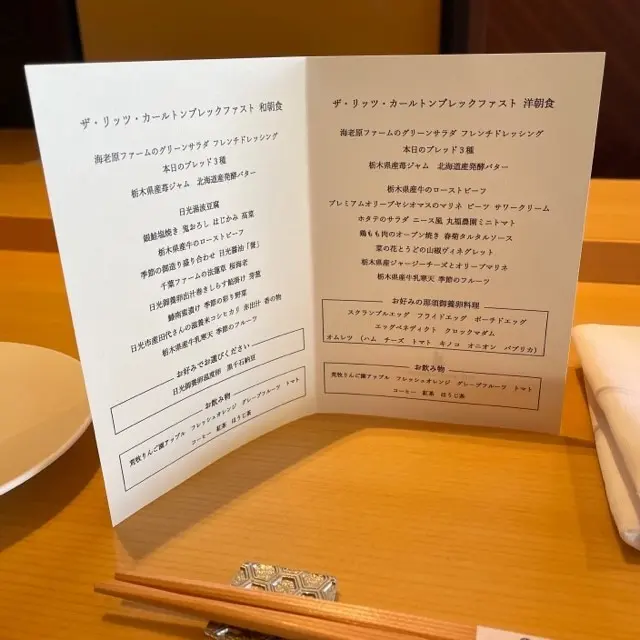 ザ・リッツ・カールトンブレックファスト 和朝食
海老原ファームのグリーンサラダ フレンチドレッシング
本日のブレッド3種
栃木県産苺ジャム 北海道産発酵バター
日光湯波豆腐
銀鮭塩焼き 鬼おろし はじかみ 高菜
栃木県産牛のローストビーフ
季節の御造り盛り合わせ 日光醤油「誉」
千葉ファームの法蓮草 桜海老
日光御養卵出汁巻きしらす餡掛け 芽葱
鰤南蛮漬け 季節の彩り野菜
日光市産田代さんの滋養米コシヒカリ 弁出汁 香の物
栃木県産牛乳寒天 季節のフルーツ
お好みでお選びください
日光御養卵温度卵 黒千石納豆
お飲み物
荒牧りんご園アップル フレッシュオレンジ グレープフルーツ トマト
コーヒー 紅茶 ほうじ茶
ザ・リッツ・カールトンブレックファスト 洋朝食
海老原ファームのグリーンサラダ フレンチドレッシング
本日のブレッド3種
栃木県産苺ジャム 北海道産発酵バター
栃木県産牛のローストビーフ
プレミアムオリーブヤシオマスのマリネ ビーツ サワークリーム
ホタテのサラダ ニース風 丸福農園ミニトマト
鶏もも肉のオーブン焼き 春菊タルタルソース
菜の花とうどの山椒ヴィネグレット
栃木県産ジャージーチーズとオリーブマリネ
栃木県産牛乳寒天 季節のフルーツ
お好みの那須御養卵料理
スクランブルエッグ フライドエッグ ポーチドエッグ
エッグベネディクト クロックマダム
オムレツ (ハム チーズ トマト キノコ オニオン パプリカ)
お飲み物
荒牧りんご園アップル フレッシュオレンジ グレープフルーツ トマト
コーヒー 紅茶 ほうじ茶